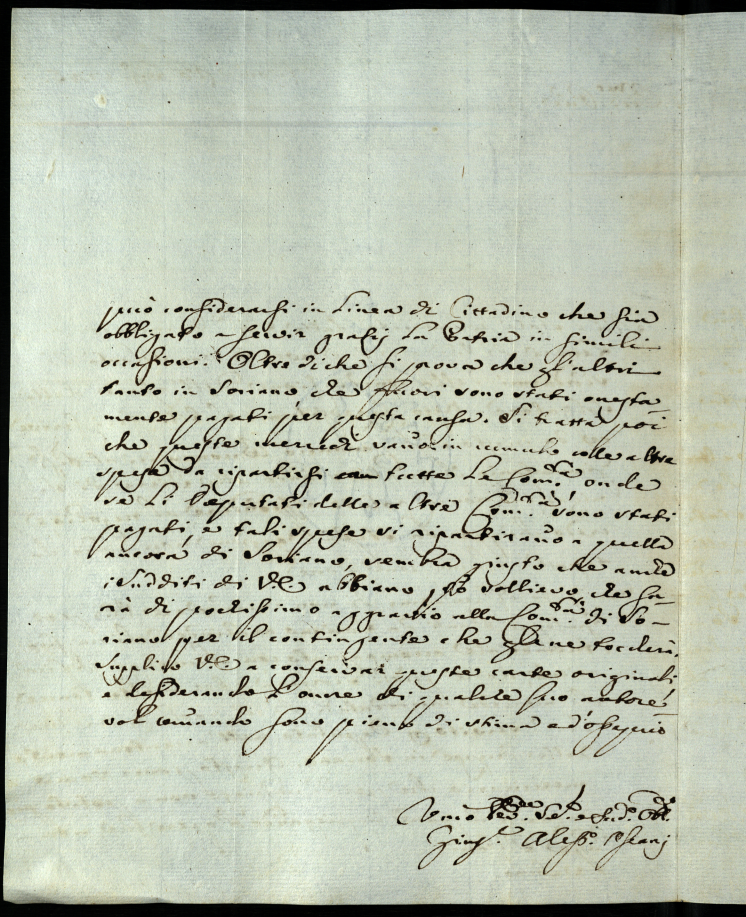 può considerarsi in Linea di Cittadino che sia
obbligato a servir gratis La Patria in simili
occasioni. Oltre di che si prova che gl'altri
tanto in Soriano che fuori sono stati onesta
mente pagati per questa causa. Si tratta poi
che queste mercedi vanno in cumulo colle altre
spese da ripartirsi con tutte Le Com.tà, onde
se Li Deputati delle altre Com.tà sono stati
pagati, e tali spese si ripartiranno a quella
ancora di Soriano, sembra giusto che anche
i sudditi di V.E. abbiano sollievo, che sa-
rà di pochissimo aggravio alla Com.tà di So-
riano per il contingente che gle ne toccherà.
Supplico V.E. a conservar queste carte originali,
e desiderando L'onore di qualche suo autore-
vol comando sono pieno di stima e d'ossequio
Aless.o